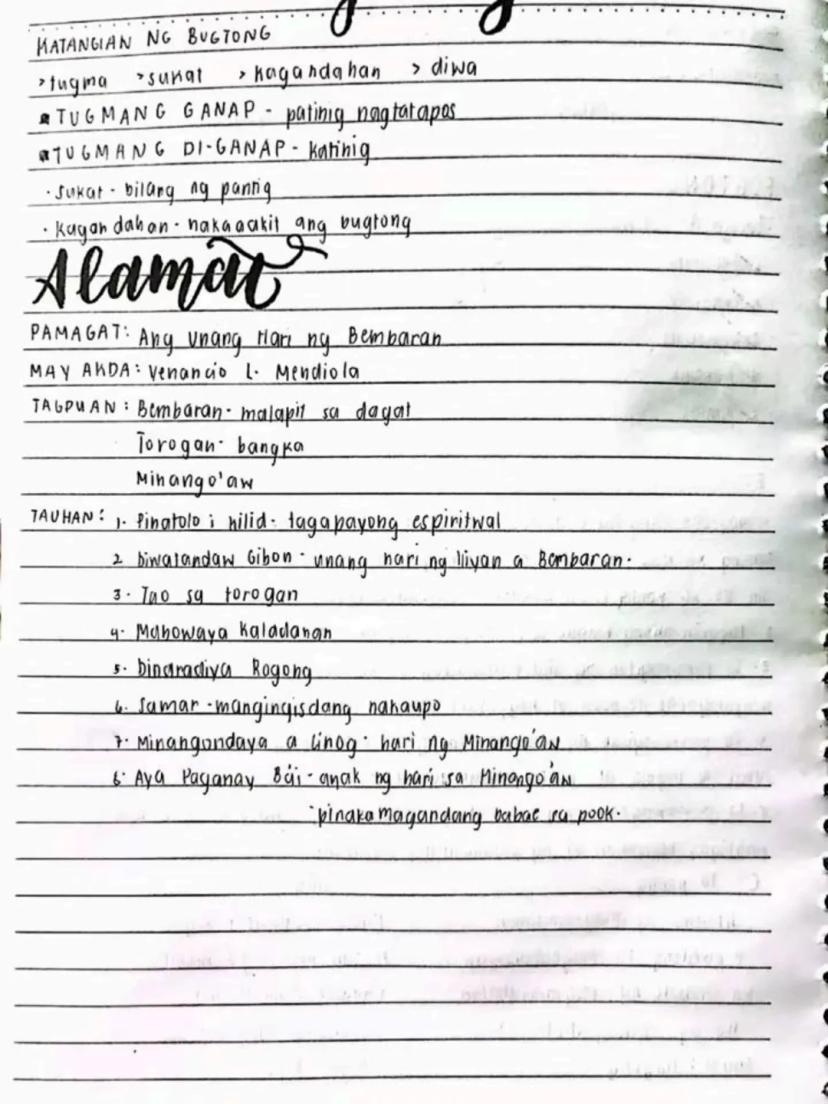 KATANGIAN NG BUGTONG
>tugma >sukat >kagandahan >diwa
▪TUGMANG GANAP - patinig nagtatapos
▪TUGMANG DI-GANAP - katinig
·sukat - bilang ng pantig
·kagandahan - nakaaakit ang bugtong
Alamat
PAMAGAT: Ang Unang Hari ng Bembaran
MAY AKDA: Venancio L. Mendiola
TAGPUAN: Bembaran - malapit sa dagat
Torogan - bangka
Minango'aw
TAUHAN: 1. Pinatolo i kilid - tagapayong espiritwal
2 Diwatandaw Gibon - unang hari ng Iliyan a Bembaran.
3. Tao sa torogan
4. Mabowaya Kaladanan
5. Dinaradiya Rogong
6. Samar - mangingisdang nakaupo
7. Minangondaya a Linog - hari ng Minango'an
6. Aya Paganay Ba'i - anak ng hari sa Minango'an
·pinakamagandang babae sa pook.